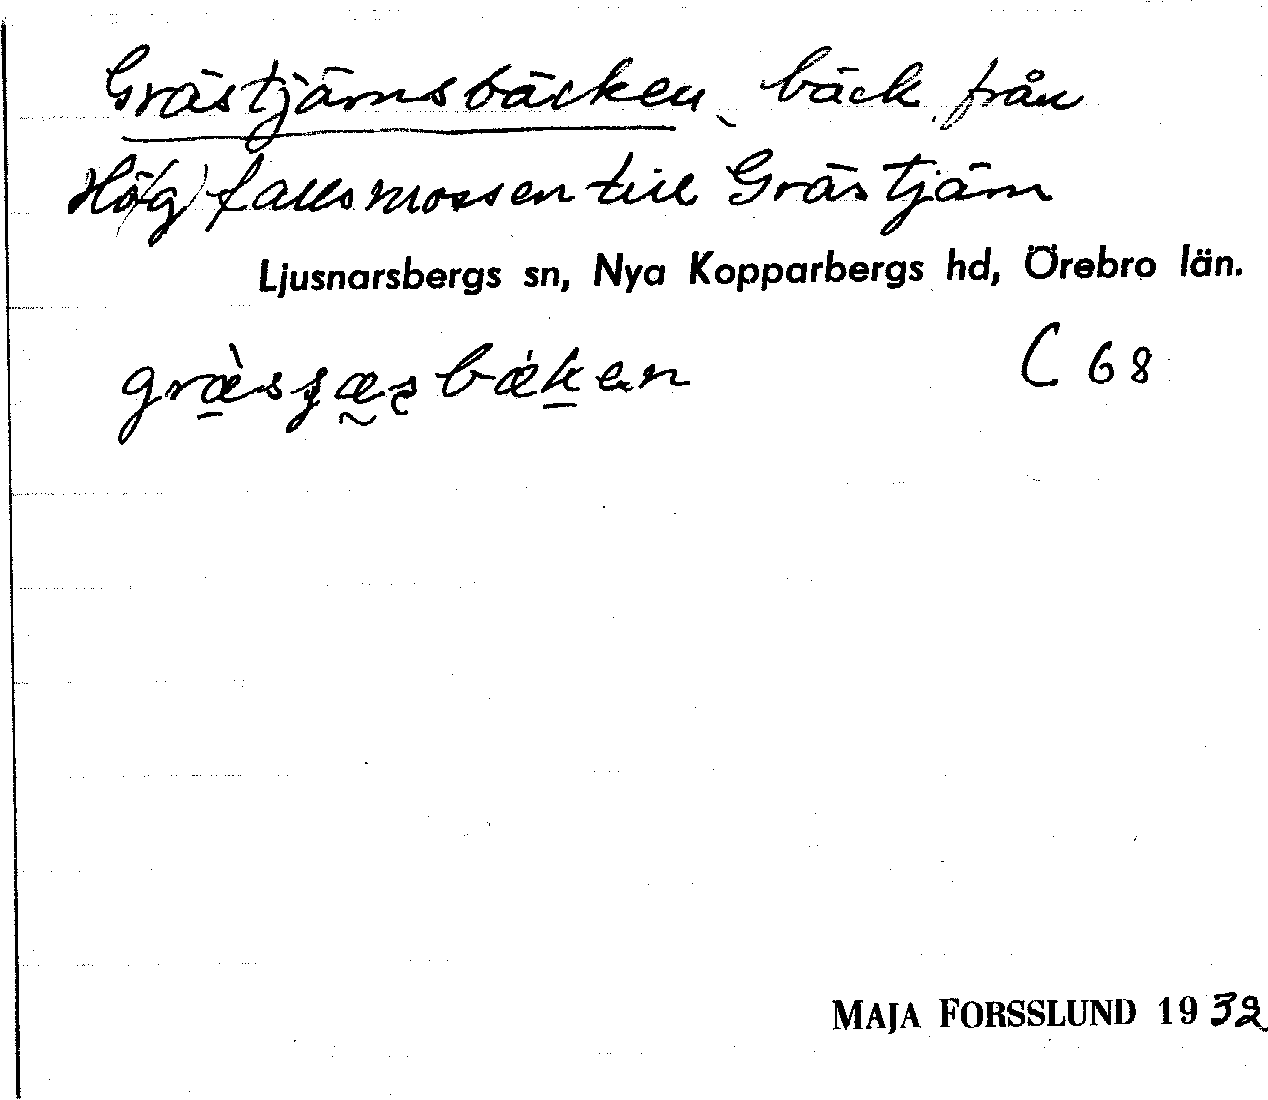 Grästjärnsbäcken, bäck från
Hö(g)fallsmossen till Grästjärn
Ljusnarsbergs sn, Nya Kopparbergs hd, Örebro län.
C 68
MAJA FORSSLUND 1932